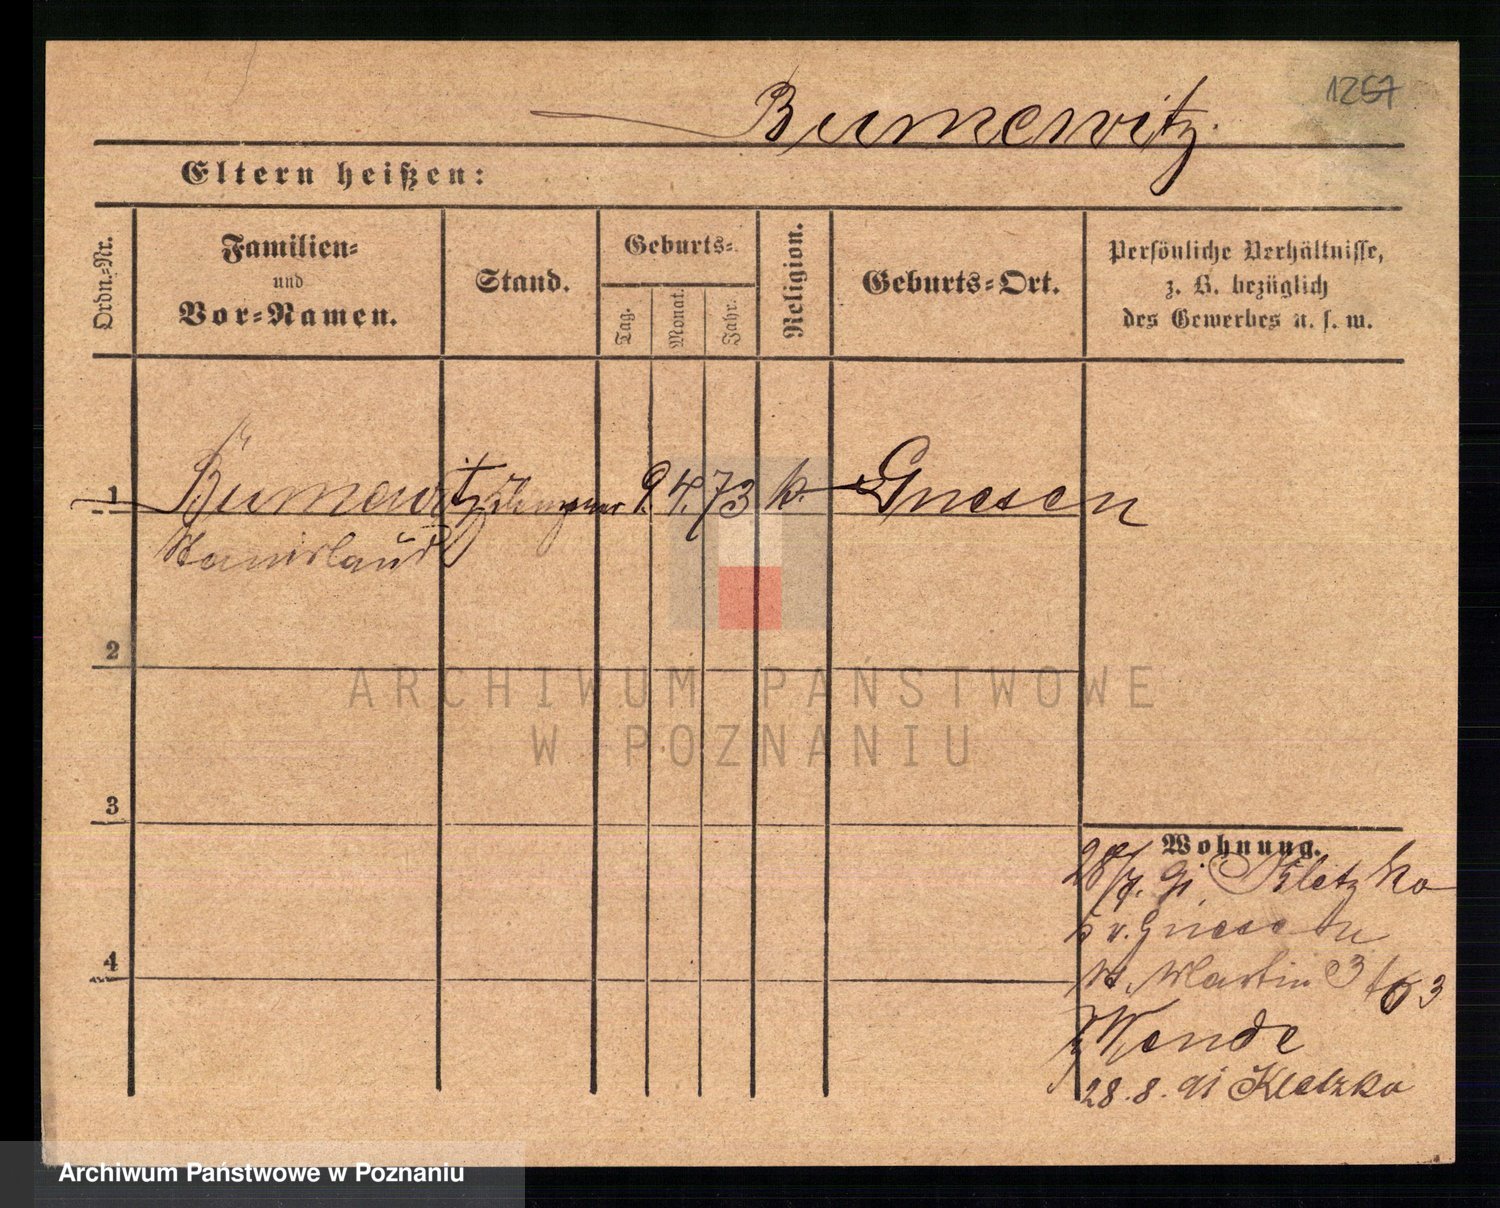 1267
Bumewitz.
Eltern heißen:
Ordn.-Nr.
Familien-
und
Vor-Namen.
Stand.
Geburts-
Tag.
Monat.
Jahr.
Religion.
Geburts-Ort.
Persönliche Verhältnisse,
z. B. bezüglich
des Gewerbes u. s. w.
1 Bumewitz Klempner 9. 4. 73 k. Gnesen
Stanislaus
2
3
4
Wohnung.
28/7. 91 Kletzko
v. Gnesen
St. Martin 3 63
Wende
28. 8. 91 Kletzko
ARCHIWUM PAŃSTWOWE
W POZNANIU
Archiwum Państwowe w Poznaniu